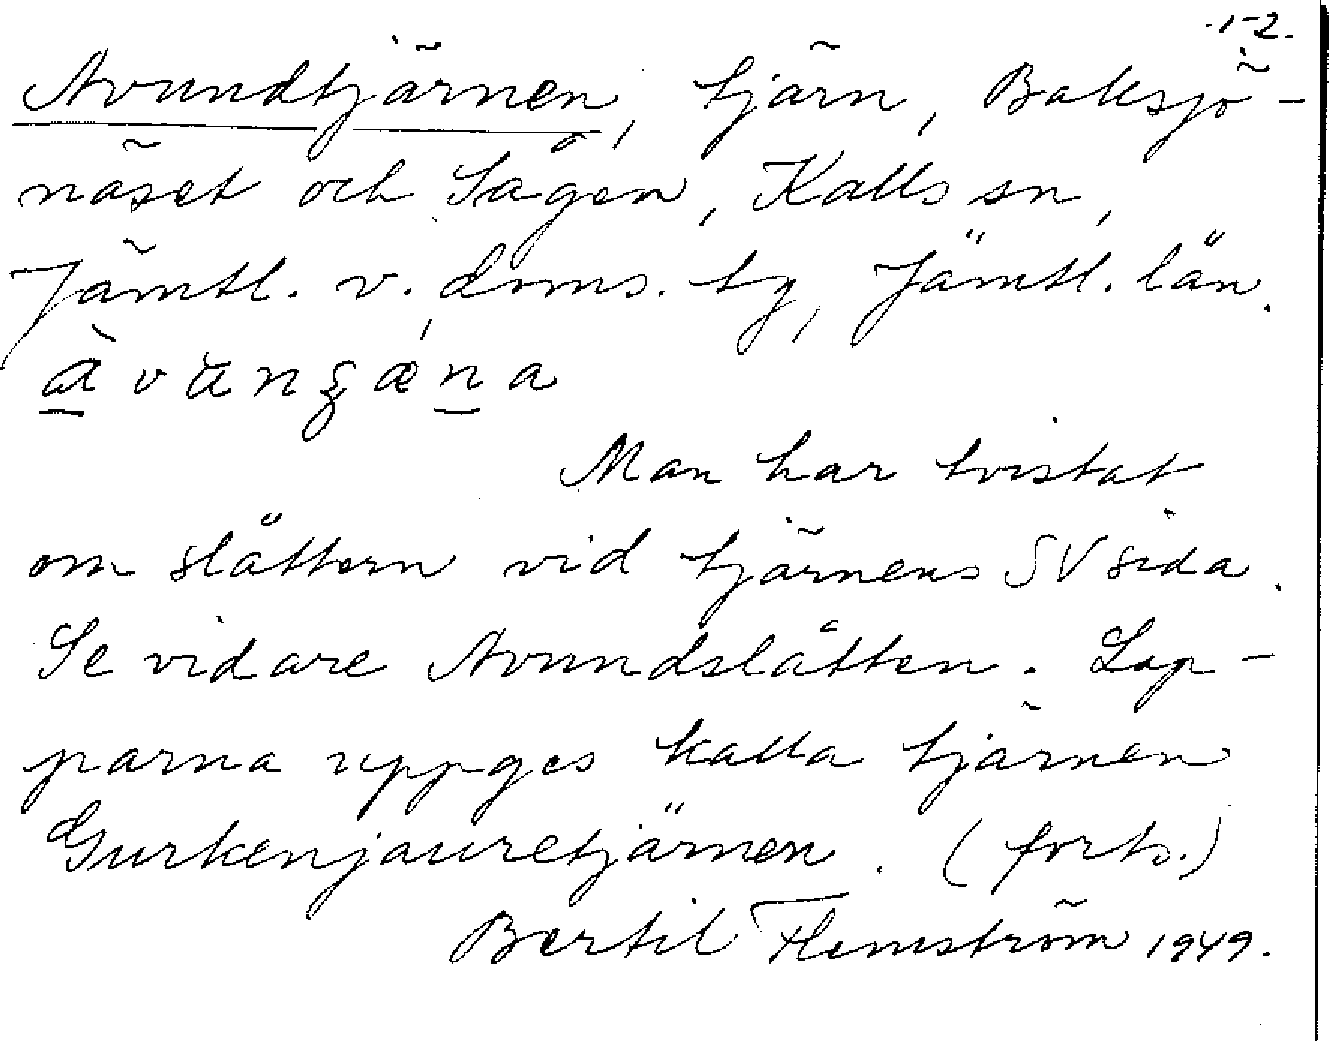 -1-2.
Avundtjärnen, tjärn, Baksjö-
näset och Sågen, Kalls sn,
Jämtl. v. doms. tg, Jämtl. län.
Man har tvistat
om slåttern vid tjärnens SV sida.
Se vidare Avundslåtten. Lap-
parna uppges kalla tjärnen
Gurkenjauretjärnen. (forts.)
Bertil Flemström 1949.